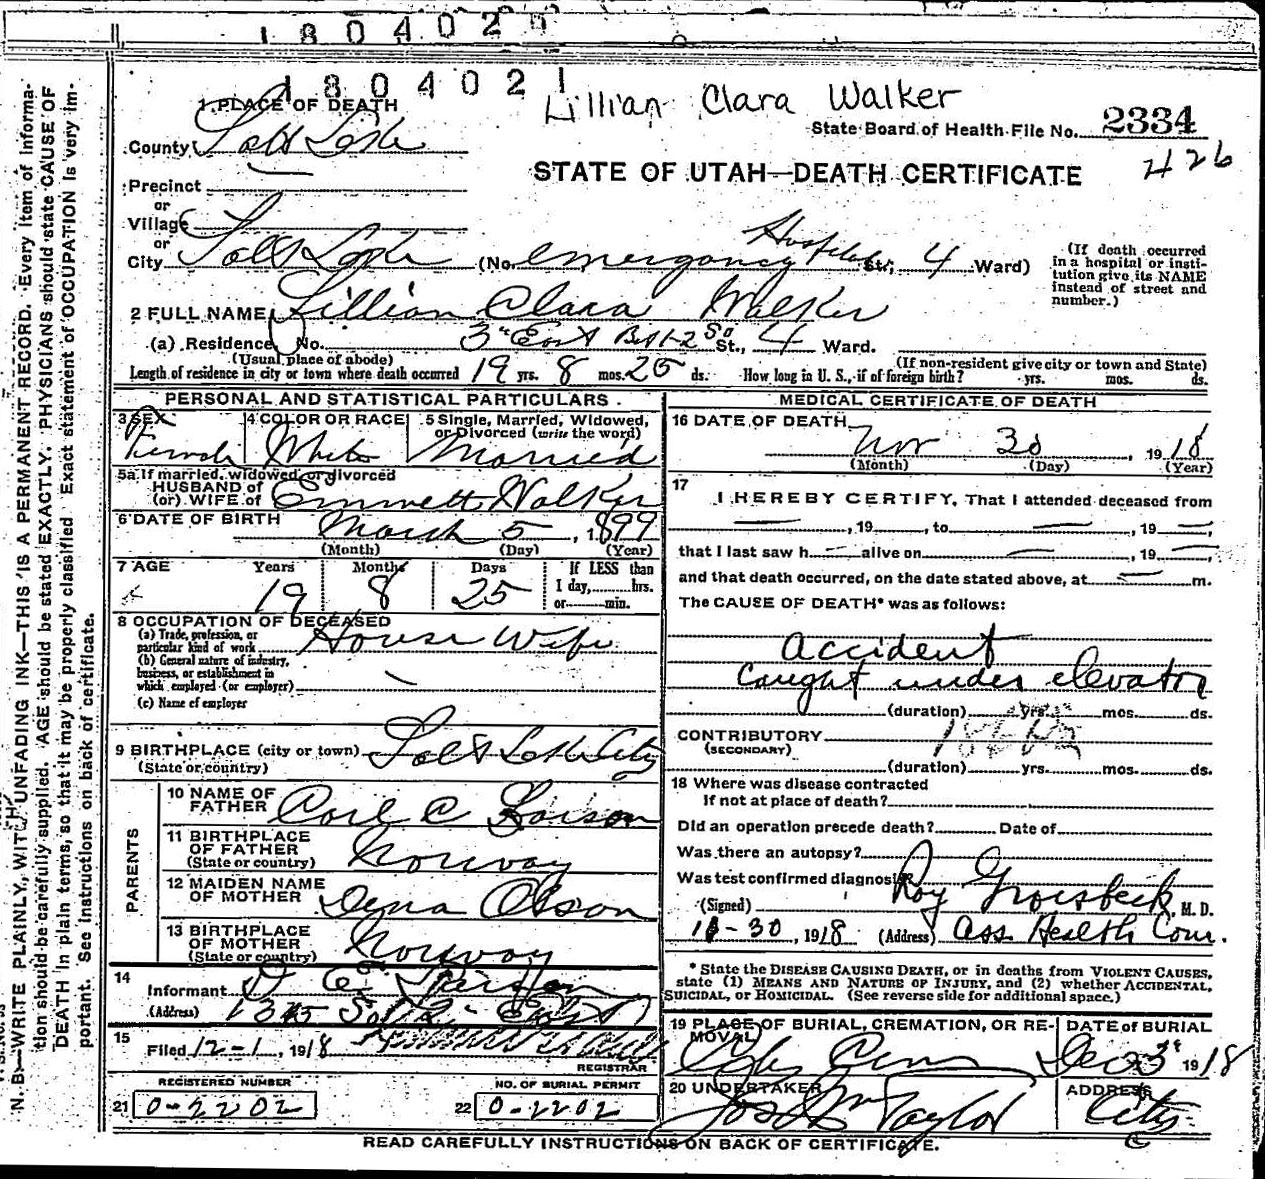 180402
1804021
Lillian Clara Walker
1 PLACE OF DEATH
State Board of Health File No. 2334
County Salt Lake
426
STATE OF UTAH—DEATH CERTIFICATE
Precinct
or
Village
or
City Salt Lake (No. Emergency Hospital St.; 4 Ward)
(If death occurred in a hospital or institution give its NAME instead of street and number.)
2 FULL NAME Lillian Clara Walker
(a) Residence No. 3rd East Bet 1-2 So St., 4 Ward.
(Usual place of abode) (If non-resident give city or town and State)
Length of residence in city or town where death occurred 19 yrs. 8 mos. 25 ds. How long in U. S., if of foreign birth? yrs. mos. ds.
PERSONAL AND STATISTICAL PARTICULARS
3 SEX Female
4 COLOR OR RACE White
5 Single, Married, Widowed, or Divorced (write the word) Married
5a If married, widowed or divorced
HUSBAND of
(or) WIFE of Emmett Walker
6 DATE OF BIRTH March 5, 1899
(Month) (Day) (Year)
7 AGE Years Months Days If LESS than
1 day, hrs.
or min.
19 8 25
8 OCCUPATION OF DECEASED
(a) Trade, profession, or
particular kind of work House Wife
(b) General nature of industry,
business, or establishment in
which employed (or employer)
(c) Name of employer
9 BIRTHPLACE (city or town) Salt Lake City
(State or country)
PARENTS
10 NAME OF
FATHER Carl C
11 BIRTHPLACE
OF FATHER
(State or country) Norway
12 MAIDEN NAME
OF MOTHER Dena Olson
13 BIRTHPLACE
OF MOTHER
(State or country) Norway
14
Informant
(Address) 1345 East
15
Filed 12-1, 1918
REGISTRAR
REGISTERED NUMBER
21 0-2202
NO. OF BURIAL PERMIT
22 0-2202
MEDICAL CERTIFICATE OF DEATH
16 DATE OF DEATH
Nov 30, 1918
(Month) (Day) (Year)
17
I HEREBY CERTIFY, That I attended deceased from
—, 19 —, to —, 19 —,
that I last saw h — alive on —, 19 —
and that death occurred, on the date stated above, at — m.
The CAUSE OF DEATH* was as follows:
Accident
Caught under elevator
(duration) yrs. mos. ds.
CONTRIBUTORY
(SECONDARY)
(duration) yrs. mos. ds.
18 Where was disease contracted
If not at place of death?
Did an operation precede death? Date of
Was there an autopsy?
Was test confirmed diagnosis?
(Signed) Roy Groesbeck, M. D.
11-30, 1918 (Address) Ass Health Com.
* State the DISEASE CAUSING DEATH, or in deaths from VIOLENT CAUSES,
state (1) MEANS AND NATURE OF INJURY, and (2) whether ACCIDENTAL,
SUICIDAL, or HOMICIDAL. (See reverse side for additional space.)
19 PLACE OF BURIAL, CREMATION, OR REMOVAL
City Cem
DATE of BURIAL
Dec 3rd 1918
20 UNDERTAKER
Jos Wm Taylor
ADDRESS
City
READ CAREFULLY INSTRUCTIONS ON BACK OF CERTIFICATE.
N. B.—WRITE PLAINLY, WITH UNFADING INK—THIS IS A PERMANENT RECORD. Every item of information should be carefully supplied. AGE should be stated EXACTLY. PHYSICIANS should state CAUSE OF DEATH in plain terms, so that it may be properly classified. Exact statement of OCCUPATION is very important. See instructions on back of certificate.